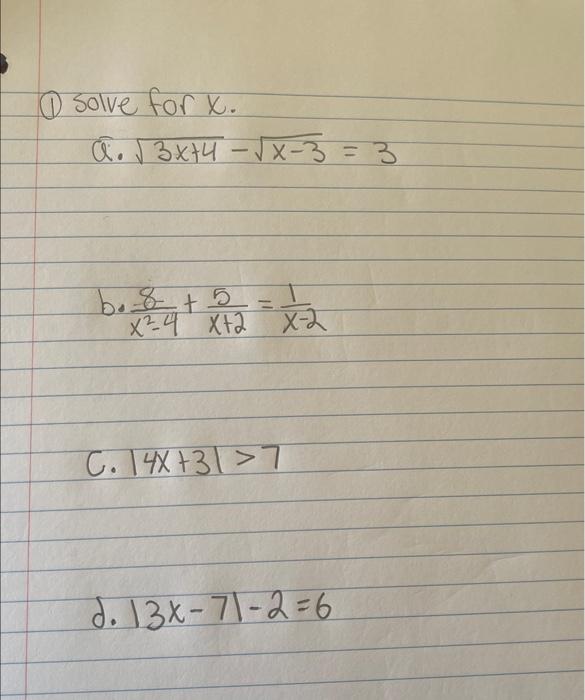 ① solve for x.
a. √3x+4 - √x-3 = 3
b. 8/x²-4 + 5/x+2 = 1/x-2
c. |4x+3| > 7
d. |3x-7|-2=6